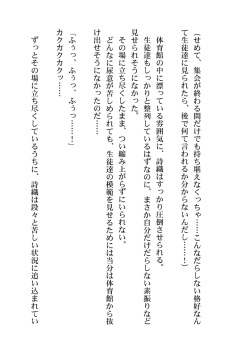 (せめて、集会が終わる間だけでも持ち堪えなくっちゃ……こんなだらしない格好なん
て生徒達に見られたら、後で何て言われるか分からないんだし……!)
　体育館の中に漂っている雰囲気に、詩織はすっかり圧倒させられる。
　生徒達もしっかりと整列しているはずなのに、まさか自分だけだらしない素振りなど
見せられそうになかった。
　その場に立ち尽くしたまま、つい縮み上がらずにいられない。
　どんなに尿意が苦しめられても、生徒達の模範を見せるためには当分は体育館から抜
け出せそうになかったのだ……
「ふぅっ、ふぅっ、ふぅっ……!」
カクカクカクッ……
　ずっとその場に立ち尽くしているうちに、詩織は段々と苦しい状況に追い込まれてい